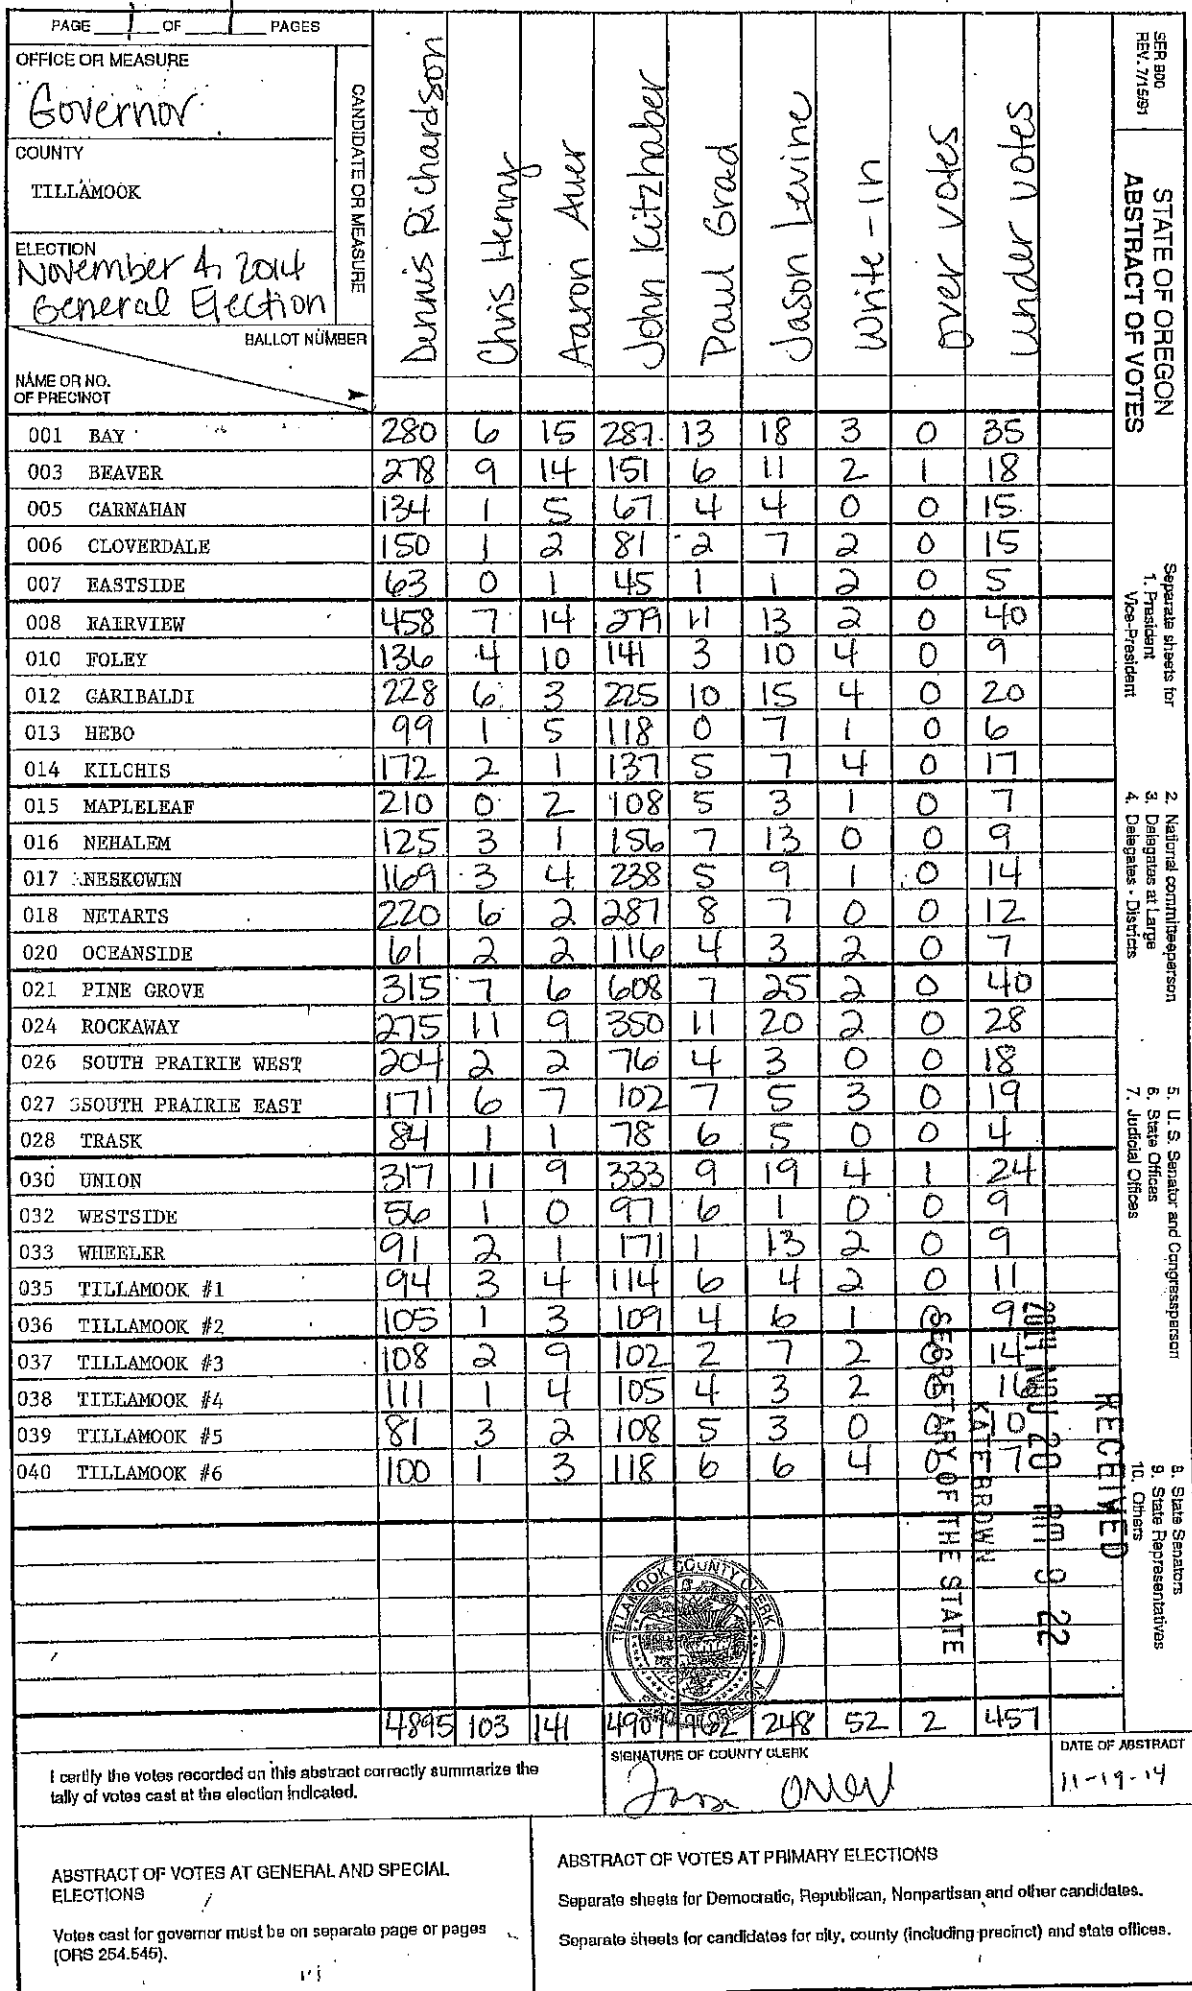 PAGE 1 OF 1 PAGES
OFFICE OR MEASURE
Governor
COUNTY
TILLAMOOK
ELECTION
November 4, 2014
General Election
CANDIDATE OR MEASURE
BALLOT NUMBER
NAME OR NO.
OF PRECINCT
Dennis Richardson
Chris Henny
Aaron Auer
John Kitzhaber
Paul Grad
Jason Levine
Write-in
over votes
under votes
SER 800
REV. 7/15/91
STATE OF OREGON
ABSTRACT OF VOTES
001 BAY 280 6 15 287 13 18 3 0 35
003 BEAVER 278 9 14 151 6 11 2 1 18
005 CARNAHAN 134 1 5 67 4 4 0 0 15
006 CLOVERDALE 150 1 2 81 2 7 2 0 15
007 EASTSIDE 63 0 1 45 1 1 2 0 5
008 FAIRVIEW 458 7 14 279 11 13 2 0 40
010 FOLEY 136 4 10 141 3 10 4 0 9
012 GARIBALDI 228 6 3 225 10 15 4 0 20
013 HEBO 99 1 5 118 0 7 1 0 6
014 KILCHIS 172 2 1 137 5 7 4 0 17
015 MAPLELEAF 210 0 2 108 5 3 1 0 7
016 NEHALEM 125 3 1 156 7 13 0 0 9
017 NESKOWIN 169 3 4 238 5 9 1 0 14
018 NETARTS 220 6 2 287 8 7 0 0 12
020 OCEANSIDE 61 2 2 116 4 3 2 0 7
021 PINE GROVE 315 7 6 608 7 25 2 0 40
024 ROCKAWAY 275 11 9 350 11 20 2 0 28
026 SOUTH PRAIRIE WEST 204 2 2 76 4 3 0 0 18
027 SSOUTH PRAIRIE EAST 171 6 7 102 7 5 3 0 19
028 TRASK 84 1 1 78 6 5 0 0 4
030 UNION 317 11 9 333 9 19 4 1 24
032 WESTSIDE 56 1 0 97 6 1 0 0 9
033 WHEELER 91 2 1 171 1 13 2 0 9
035 TILLAMOOK #1 94 3 4 114 6 4 2 0 11
036 TILLAMOOK #2 105 1 3 109 4 6 1 0 9
037 TILLAMOOK #3 108 2 9 102 2 7 2 0 14
038 TILLAMOOK #4 111 1 4 105 4 3 2 0 16
039 TILLAMOOK #5 81 3 2 108 5 3 0 0 10
040 TILLAMOOK #6 100 1 3 118 6 6 4 0 7
4895 103 141 4907 162 248 52 2 457
Separate sheets for
1. President
Vice-President
2. National committeeperson
3. Delegates at Large
4. Delegates - Districts
5. U. S. Senator and Congressperson
6. State Offices
7. Judicial Offices
8. State Senators
9. State Representatives
10. Others
RECEIVED
2014 NOV 20 AM 9 22
KATE BROWN
SECRETARY OF THE STATE
TILLAMOOK COUNTY CLERK
I certify the votes recorded on this abstract correctly summarize the
tally of votes cast at the election indicated.
SIGNATURE OF COUNTY CLERK
DATE OF ABSTRACT
11-19-14
ABSTRACT OF VOTES AT GENERAL AND SPECIAL
ELECTIONS
Votes cast for governor must be on separate page or pages
(ORS 254.545).
ABSTRACT OF VOTES AT PRIMARY ELECTIONS
Separate sheets for Democratic, Republican, Nonpartisan and other candidates.
Separate sheets for candidates for city, county (including precinct) and state offices.